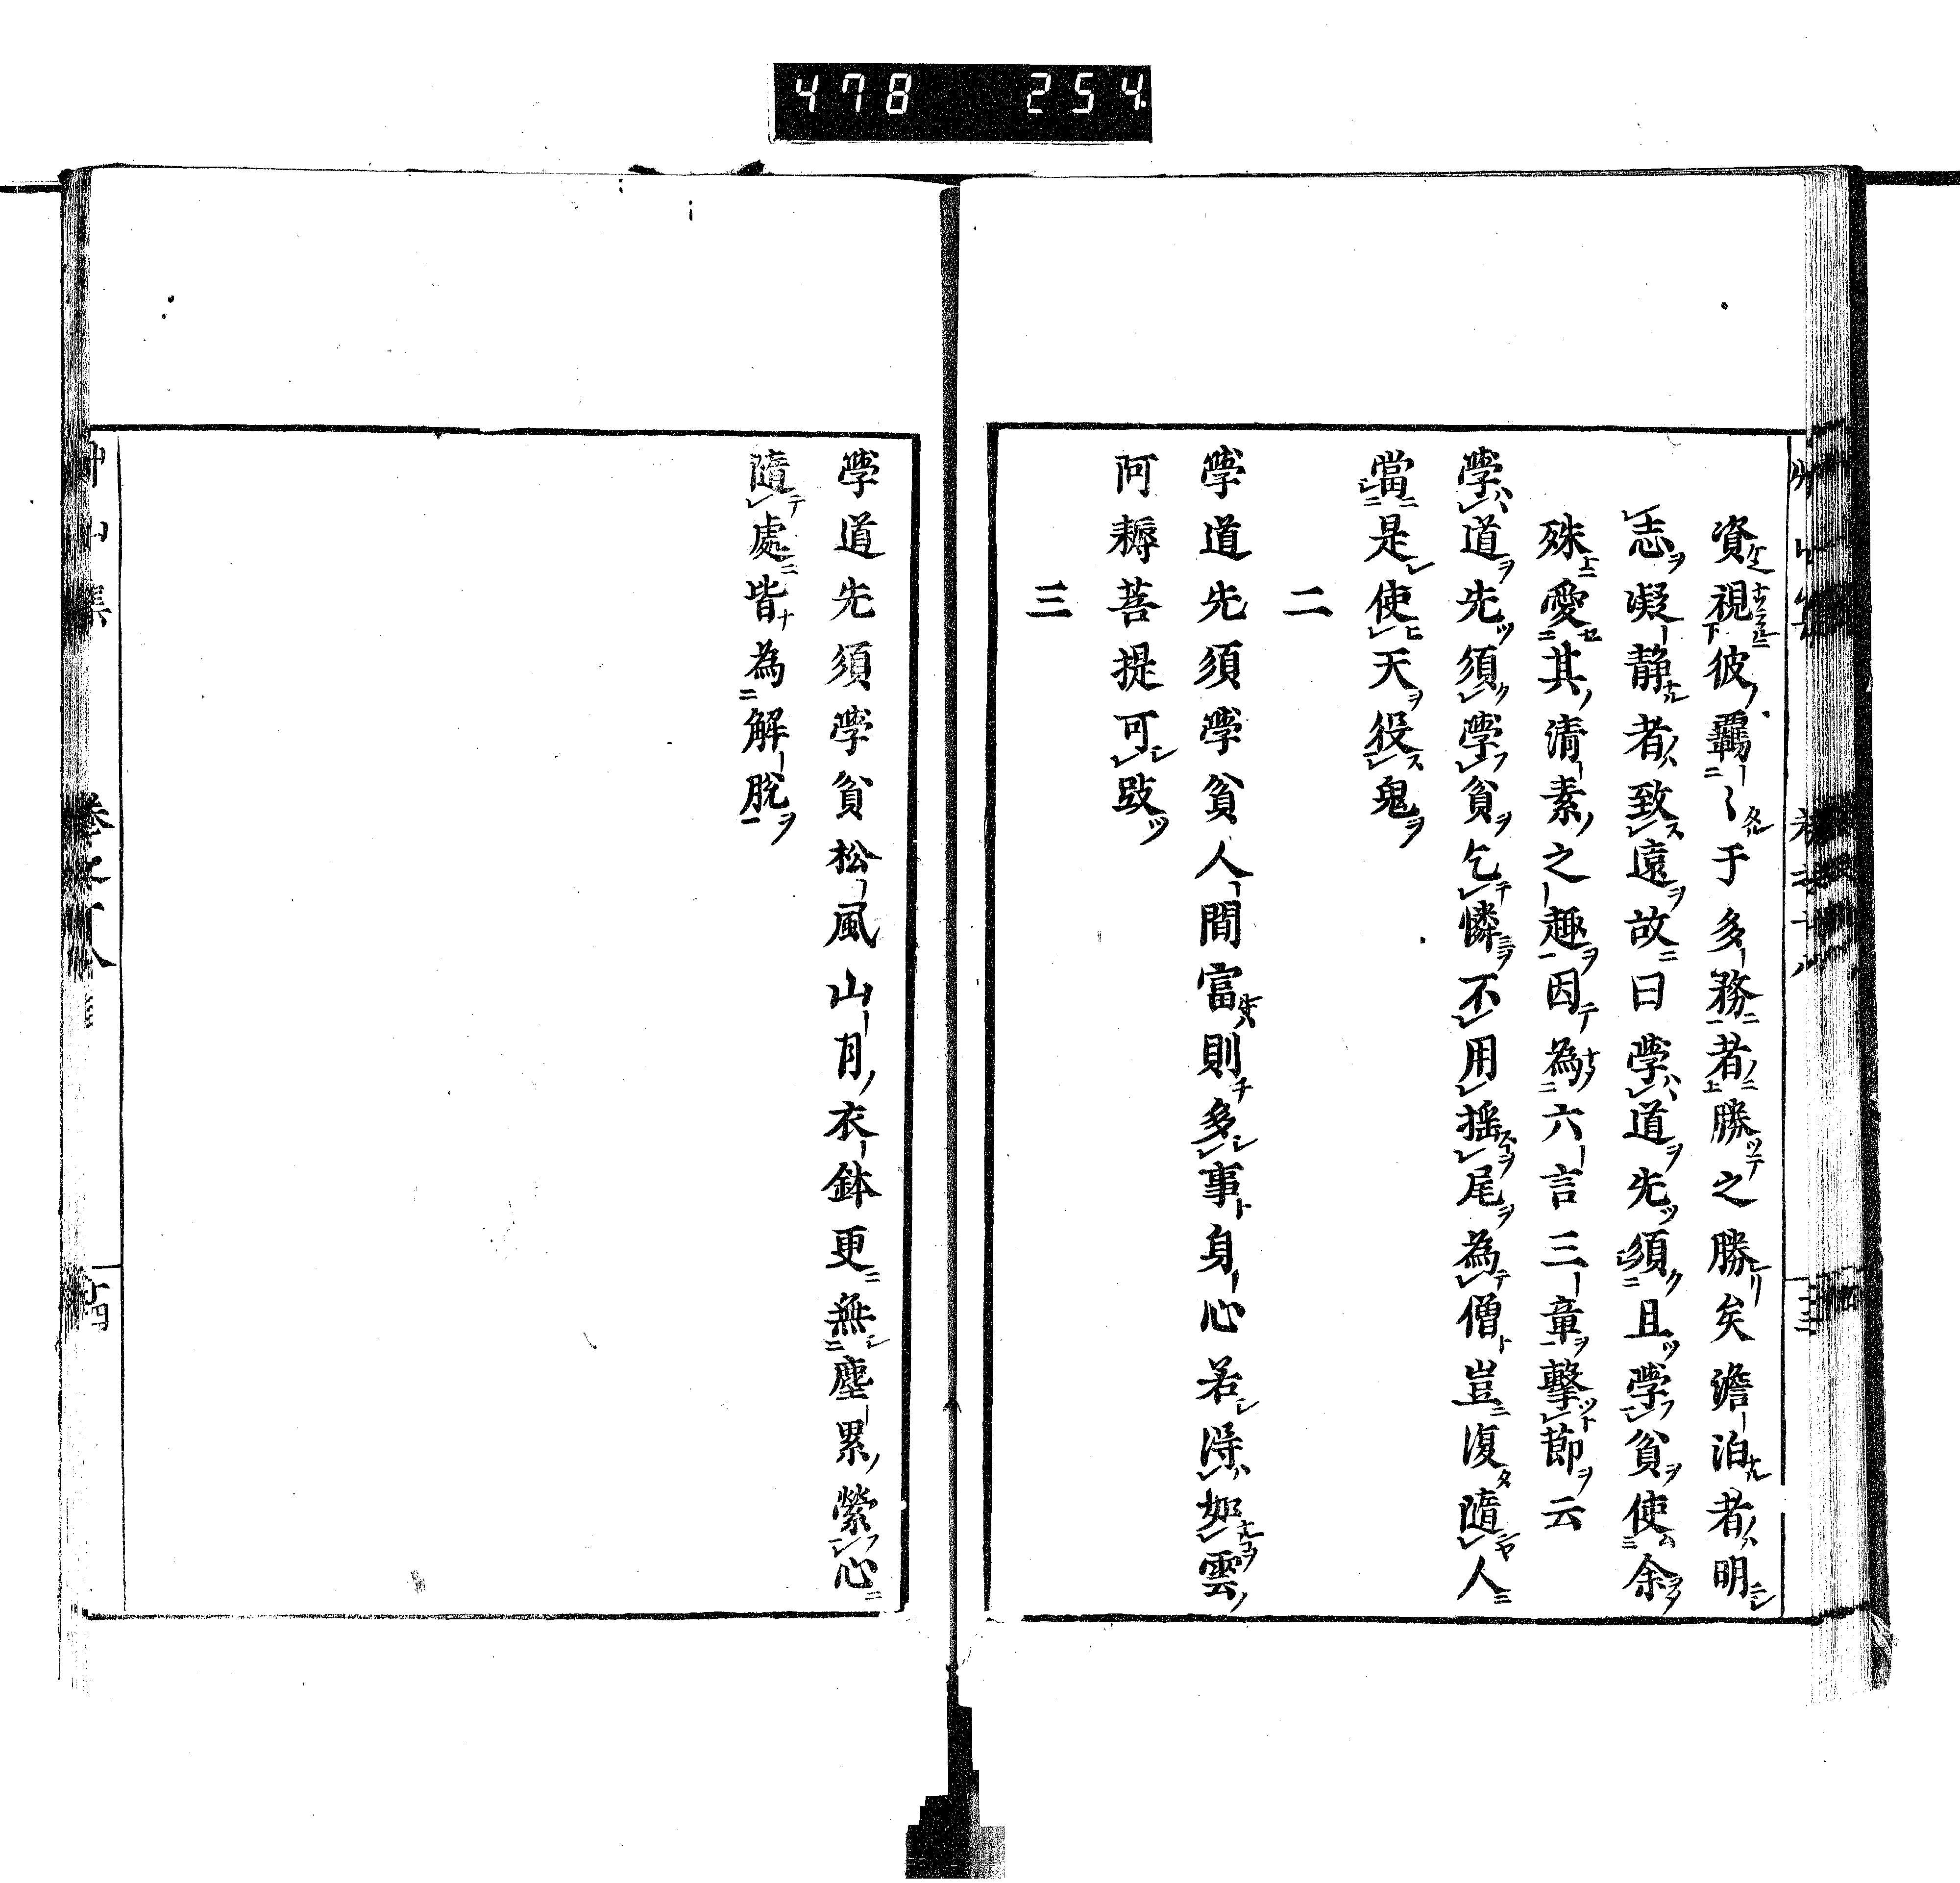 478 254
資視彼羈〻于多務者勝之勝矣澹泊者明
志凝静者致遠故曰學道先須且學貧使余
殊愛其清素之趣因為六言三章擊節云
學道先須學貧乞憐不用揺尾為僧豈復隨人
當是使天役鬼
二
學道先須學貧人間富則多事身心若淂如雲
阿耨菩提可跂
三
學道先須學貧松風山月衣鉢更無塵累縈心
隨處皆為解脱
集 卷之十八 十四